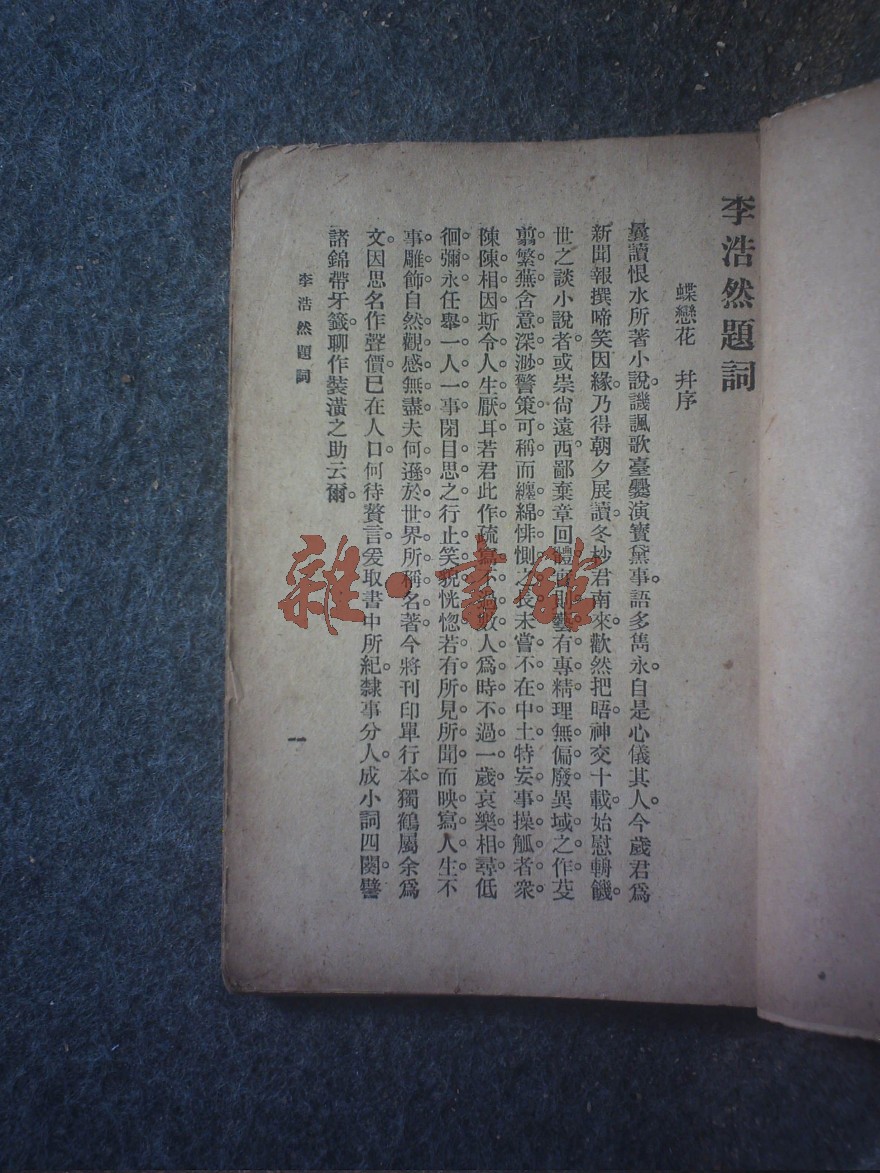 李浩然題詞
蝶戀花　幷序
曩讀恨水所著小說。譏諷歌臺。爨演寶黛事。語多雋永。自是心儀其人。今歲君爲
新聞報撰啼笑因緣。乃得朝夕展讀。冬杪君南來。歡然把晤。神交十載。始慰輖饑。
世之談小說者。或崇尙遠西。鄙棄章回體。實則藝有專精。理無偏廢。異域之作。芟
翦繁蕪。含意深渺。警策可稱。而纏綿悱惻之長。未嘗不在中土。特妄事操觚者衆。
陳陳相因。斯令人生厭耳。若君此作。疏寫不過數人。爲時不過一歲。哀樂相尋。低
徊彌永。任舉一人一事。閉目思之。行止笑貌。恍惚若有所見所聞。而映寫人生。不
事雕飾。自然觀感無盡。夫何遜於世界所稱名著。今將刊印單行本。獨鶴屬余爲
文。因思名作聲價。已在人口。何待贅言。爰取書中所紀。隸事分人。成小詞四闋。譬
諸錦帶牙籤。聊作裝潢之助云爾。
李浩然題詞
一
雜·書館